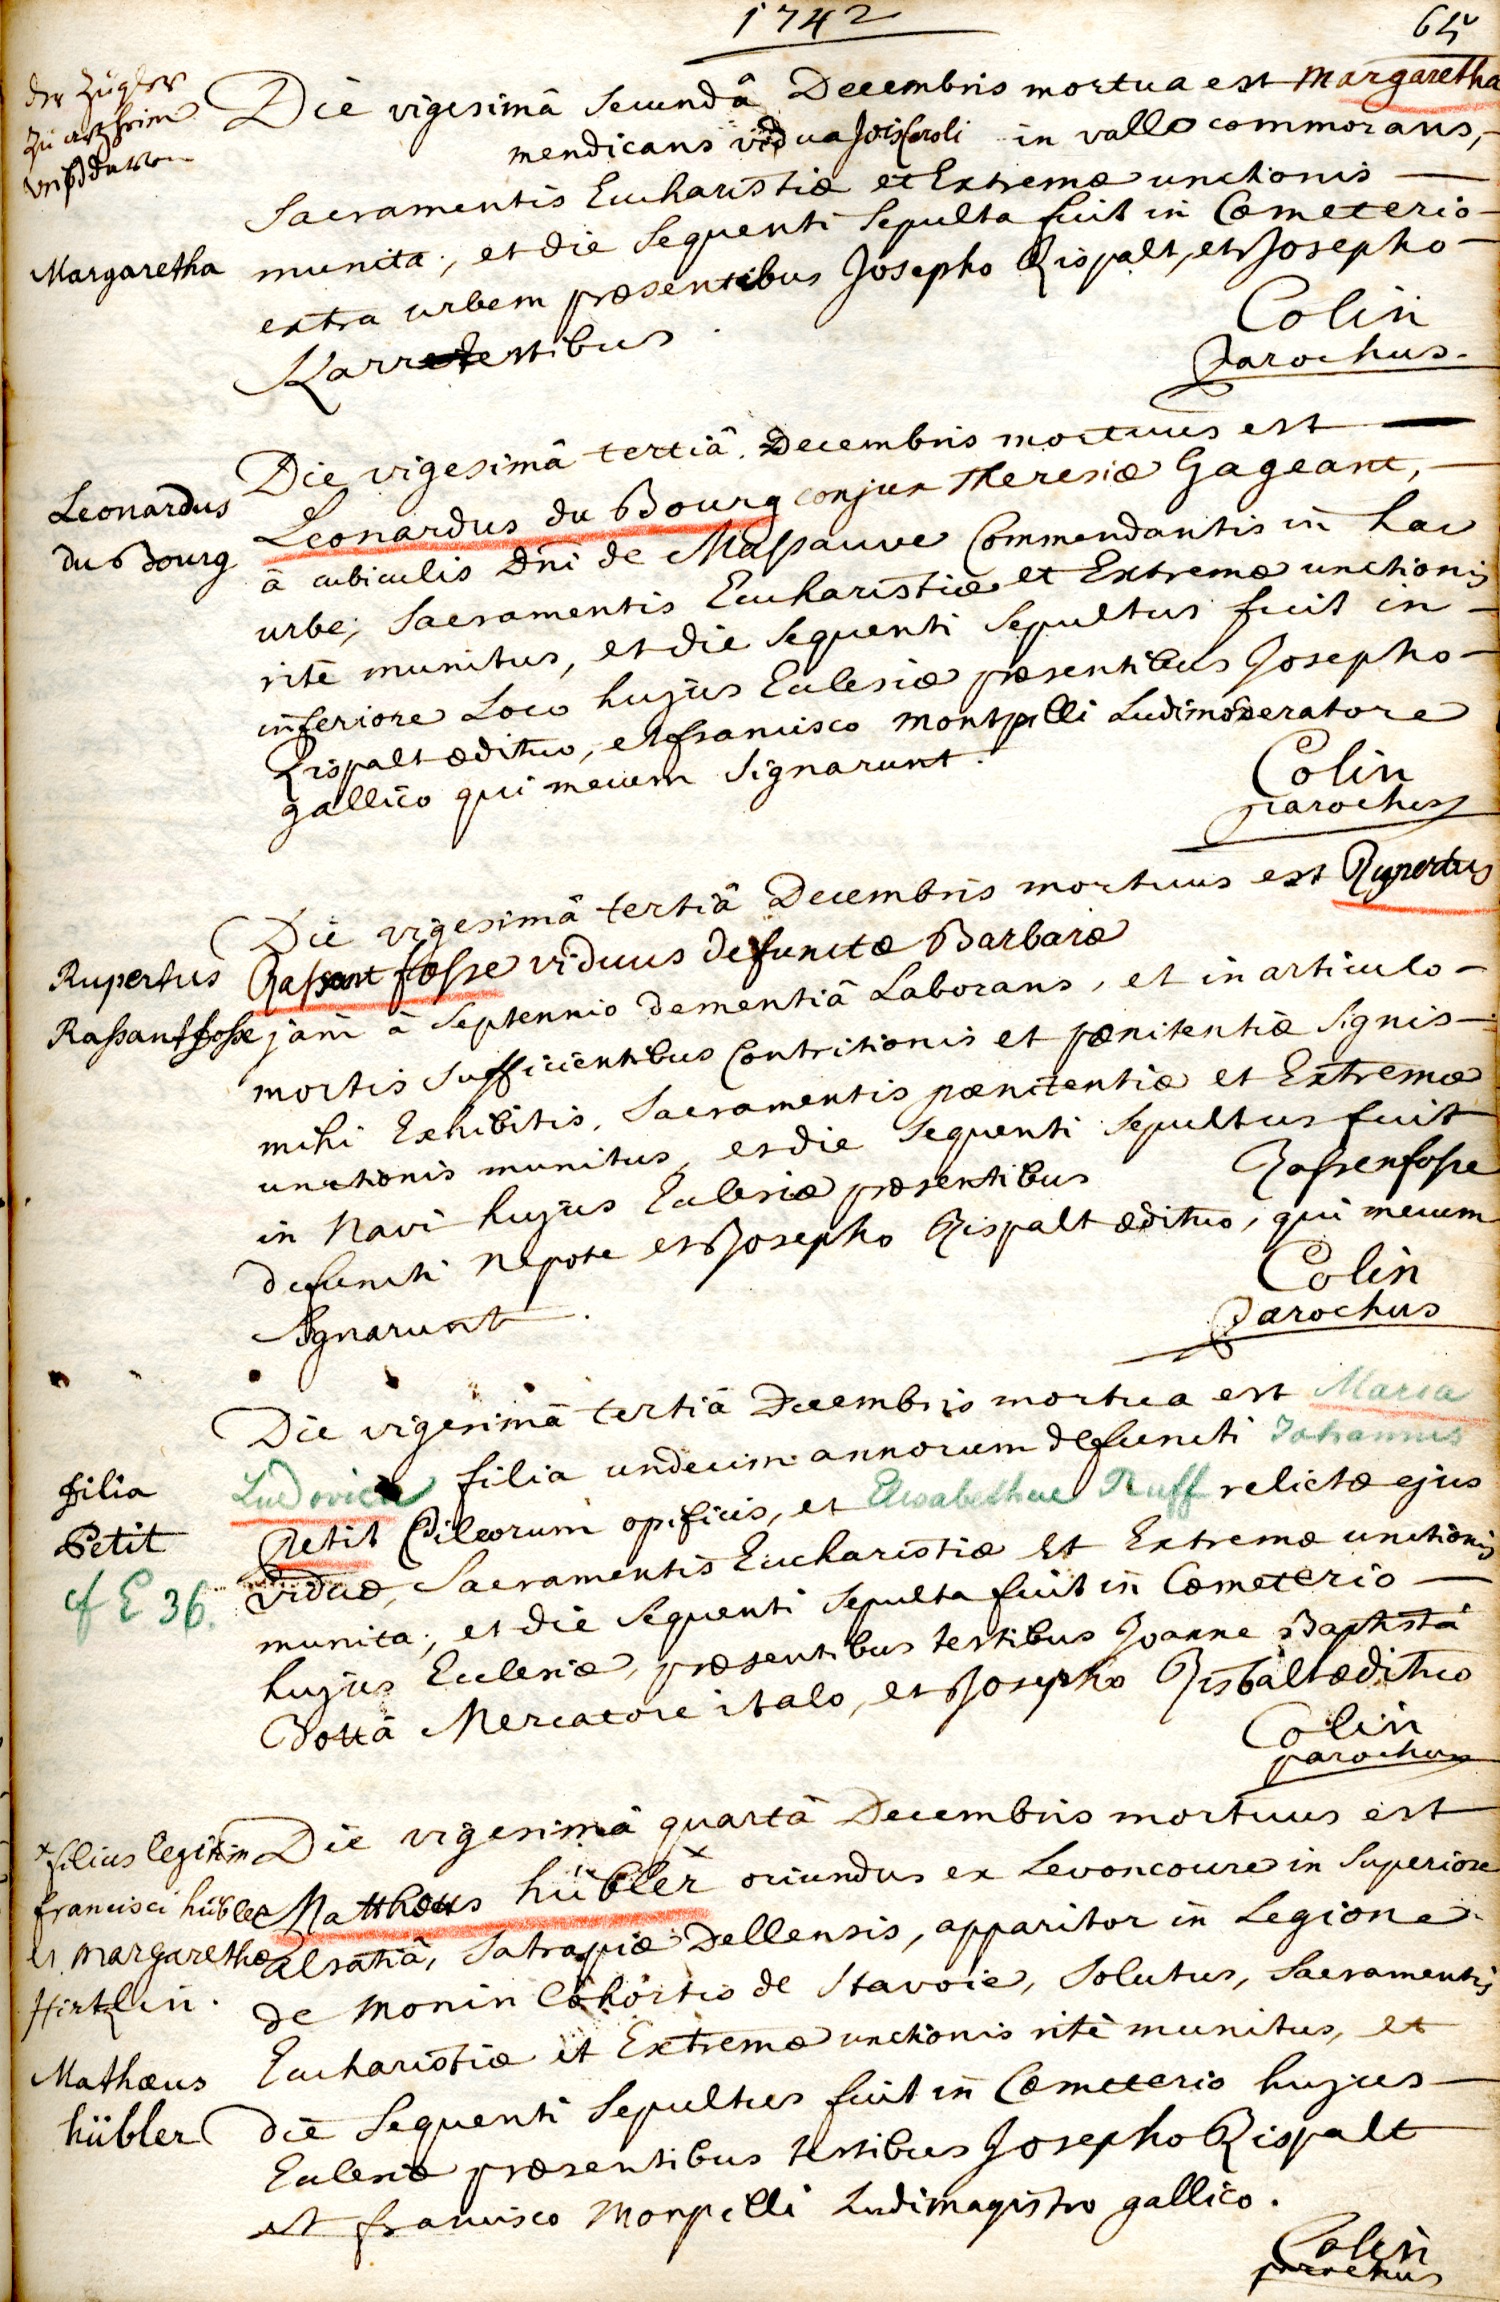 1742
65
Die vigesimâ secundâ Decembris mortua est Margaretha
mendicans vidua Jois Caroli in valle commorans,
Sacramentis Eucharistiæ et Extremæ unctionis
Margaretha
munita, et die sequenti sepulta fuit in Cæmeterio
extra urbem præsentibus Josepho Rispalt, et Josepho
Karre testibus
Colin
Parochus.
Die vigesimâ tertiâ Decembris mortuus est
Leonardus
du Bourg
Leonardus du Bourg conjux Theresiæ Gageant,
â cubiculis Dni de Massauve Commendantis in hac
urbe, Sacramentis Eucharistiæ et Extremæ unctionis
ritè munitus, et die sequenti sepultus fuit in
inferiore Loco hujus Ecclesiæ præsentibus Josepho
Rispalt ædituo, et francisco montpelli Ludimoderatore
gallico qui mecum signarunt.
Colin
parochus
Die vigesimâ tertiâ Decembris mortuus est Rupertus
Rupertus
Rassantfosse
Rassant fosse viduus defunctæ Barbaræ
jam â septennio dementiâ Laborans, et in articulo
mortis sufficientibus Contritionis et pænitentiæ signis
mihi Exhibitis, Sacramentis pænitentiæ et Extremæ
unctionis munitus, et die sequenti sepultus fuit
in Navi hujus Ecclesiæ præsentibus Rassenfosse
defuncti Nepote et Josepho Rispalt ædituo, qui mecum
signarunt.
Colin
Parochus
Die vigesimâ tertiâ Decembris mortua est Maria
filia
Petit
cf E 36.
Ludovica filia undecim annorum defuncti Johannis
Petit Pileorum opificis, et Elisabethae Ruff relictæ ejus
viduæ, Sacramentis Eucharistiæ et Extremæ unctionis
munita, et die sequenti sepulta fuit in Cæmeterio
hujus Ecclesiæ, præsentibus testibus Joanne Baptistâ
Bottâ Mercatore italo, et Josepho Risbalt ædituo
Colin
parochus
Die vigesimâ quartâ Decembris mortuus est
x filius legitim
francisci hübler
et margarethæ
Hirtzlin.
Mathæus
hübler
Matthæus hübler x oriundus ex Levoncoure in superiore
alsatiâ, satrapiæ Dellensis, apparitor in Legione
de monin Cohortis de Stavoie, solutus, Sacramentis
Eucharistiæ et Extremæ unctionis ritè munitus, et
die sequenti sepultus fuit in Cæmeterio hujus
Ecclesiæ præsentibus testibus Josepho Rispalt
et francisco Monpelli Ludimagistro gallico.
Colin
parochus